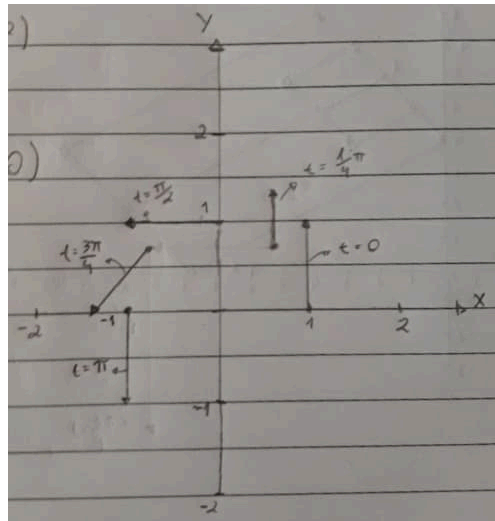 Y
2
t = 1/4 π
t = π/2
1
t = 3π/4
t = 0
X
-2
-1
1
2
t = π
-1
-2